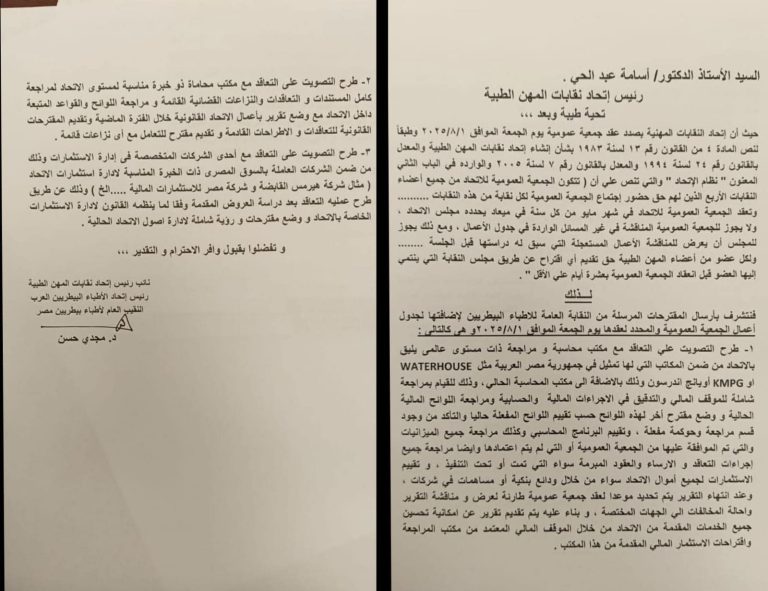 السيد الأستاذ الدكتور/ أسامة عبد الحي .
رئيس إتحاد نقابات المهن الطبية
تحية طيبة وبعد ،،،
حيث أن إتحاد النقابات المهنية بصدد عقد جمعية عمومية يوم الجمعة الموافق ٢٠٢٥/٨/١ وطبقاً
لنص المادة ٤ من القانون رقم ١٣ لسنة ١٩٨٣ بشأن إنشاء إتحاد نقابات المهن الطبية والمعدل
بالقانون رقم ٢٤ لسنة ١٩٩٤ والمعدل بالقانون رقم ٧ لسنة ٢٠٠٥ والوارده في الباب الثاني
المعنون " نظام الإتحاد " والتي تنص علي أن ( تتكون الجمعية العمومية للاتحاد من جميع أعضاء
النقابات الأربع الذين لهم حق حضور إجتماع الجمعية العمومية لكل نقابة من هذه النقابات ..........
وتعقد الجمعية العمومية للاتحاد في شهر مايو من كل سنة في ميعاد يحدده مجلس الاتحاد ،
ولا يجوز للجمعية العمومية المناقشة في غير المسائل الواردة في جدول الأعمال ، ومع ذلك يجوز
للمجلس أن يعرض للمناقشة الأعمال المستعجلة التي سبق له دراستها قبل الجلسة ........
ولكل عضو من أعضاء المهن الطبية حق تقديم أي اقتراح عن طريق مجلس النقابة التي ينتمي
إليها العضو قبل انعقاد الجمعية العمومية بعشرة أيام علي الأقل " .
لــذلك
فنتشرف بأرسال المقترحات المرسلة من النقابة العامة للاطباء البيطريين لإضافتها لجدول
أعمال الجمعية العمومية والمحدد لعقدها يوم الجمعة الموافق ٢٠٢٥/٨/١ و هى كالتالى :
١- طرح التصويت علي التعاقد مع مكتب محاسبة و مراجعة ذات مستوى عالمى يليق
بالاتحاد من ضمن المكاتب التي لها تمثيل في جمهورية مصر العربية مثل WATERHOUSE
او KMPG أوبانج اندرسون وذلك بالاضافة الى مكتب المحاسبة الحالي ، وذلك للقيام بمراجعة
شاملة للموقف المالي والتدقيق في الاجراءات المالية والحسابية ومراجعة اللوائح المالية
الحالية و وضع مقترح أخر لهذه اللوائح حسب تقييم اللوائح المفعلة حاليا والتأكد من وجود
قسم مراجعة وحوكمة مفعلة ، وتقييم البرنامج المحاسبي وكذلك مراجعة جميع الميزانيات
والتي تم الموافقة عليها من الجمعية العمومية أو التي لم يتم اعتمادها وايضا مراجعة جميع
إجراءات التعاقد و الارساء والعقود المبرمة سواء التي تمت أو تحت التنفيذ ، و تقييم
الاستثمارات لجميع أموال الاتحاد سواء من خلال ودائع بنكية أو مساهمات في شركات ،
وعند انتهاء التقرير يتم تحديد موعدا لعقد جمعية عمومية طارئة لعرض و مناقشة التقرير
واحالة المخالفات الي الجهات المختصة ، و بناء عليه يتم تقديم تقرير عن امكانية تحسين
جميع الخدمات المقدمة من الاتحاد من خلال الموقف المالي المعتمد من مكتب المراجعة
واقتراحات الاستثمار المالي المقدمة من هذا المكتب .
٢- طرح التصويت على التعاقد مع مكتب محاماة ذو خبرة مناسبة لمستوى الاتحاد لمراجعة
كامل المستندات و التعاقدات والنزاعات القضائية القائمة و مراجعة اللوائح والقواعد المتبعة
داخل الاتحاد مع وضع تقرير بأعمال الاتحاد القانونية خلال الفترة الماضية وتقديم المقترحات
القانونية للتعاقدات و الاطراحات القادمة و تقديم مقترح للتعامل مع أى نزاعات قائمة .
٣- طرح التصويت على التعاقد مع أحدى الشركات المتخصصة فى إدارة الاستثمارات وذلك
من ضمن الشركات العاملة بالسوق المصرى ذات الخبرة المناسبة لادارة استثمارات الاتحاد
( مثال شركة هيرمس القابضة و شركة مصر للاستثمارات المالية .....الخ ) وذلك عن طريق
طرح عمليه التعاقد بعد دراسة العروض المقدمة وفقا لما ينظمه القانون لادارة الاستثمارات
الخاصة بالاتحاد و وضع مقترحات و رؤية شاملة لادارة اصول الاتحاد الحالية .
و تفضلوا بقبول وافر الاحترام و التقدير ،،،
نائب رئيس إتحاد نقابات المهن الطبية
رئيس إتحاد الأطباء البيطريين العرب
النقيب العام لأطباء بيطريين مصر
د. مجدي حسن